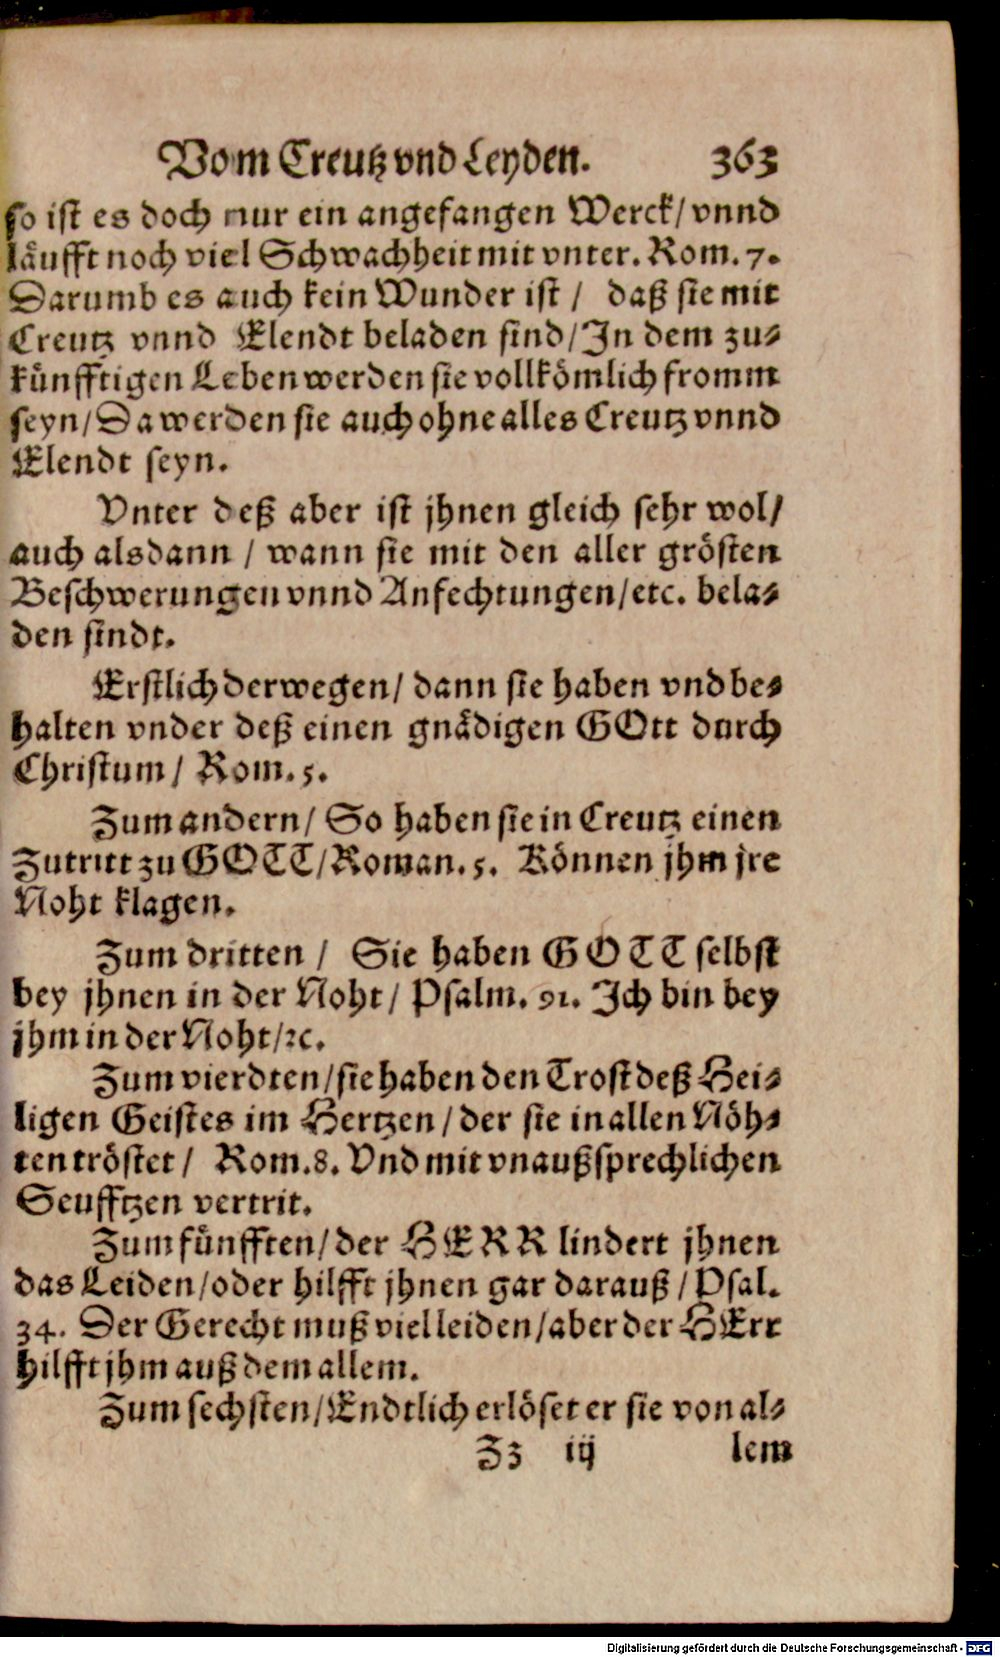 Vom Creutz vnd Leyden. 363
so ist es doch nur ein angefangen Werck/ vnnd
läufft noch viel Schwachheit mit vnter. Rom. 7.
Darumb es auch kein Wunder ist / daß sie mit
Creutz vnnd Elendt beladen sind/ In dem zu-
künfftigen Leben werden sie vollkömlich fromm
seyn/ Da werden sie auch ohne alles Creutz vnnd
Elendt seyn.
Vnter deß aber ist jhnen gleich sehr wol/
auch alsdann / wann sie mit den aller grösten
Beschwerungen vnnd Anfechtungen/ etc. bela-
den sindt.
Erstlich derwegen/ dann sie haben vnd be-
halten vnder deß einen gnädigen GOtt durch
Christum / Rom. 5.
Zum andern/ So haben sie in Creutz einen
Zutritt zu GOTT/ Roman. 5. Können jhm jre
Noht klagen.
Zum dritten / Sie haben GOTT selbst
bey jhnen in der Noht/ Psalm. 91. Ich bin bey
jhm in der Noht/ ꝛc.
Zum vierdten/ sie haben den Trost deß Hei-
ligen Geistes im Hertzen / der sie in allen Nöh-
ten tröstet / Rom. 8. Vnd mit vnaußsprechlichen
Seufftzen vertrit.
Zum fünfften/ der HERR lindert jhnen
das Leiden/ oder hilfft jhnen gar darauß / Psal.
34. Der Gerecht muß viel leiden/ aber der HErr
hilfft jhm auß dem allem.
Zum sechsten/ Endtlich erlöset er sie von al-
Zz iij lem
Digitalisierung gefördert durch die Deutsche Forschungsgemeinschaft - DFG